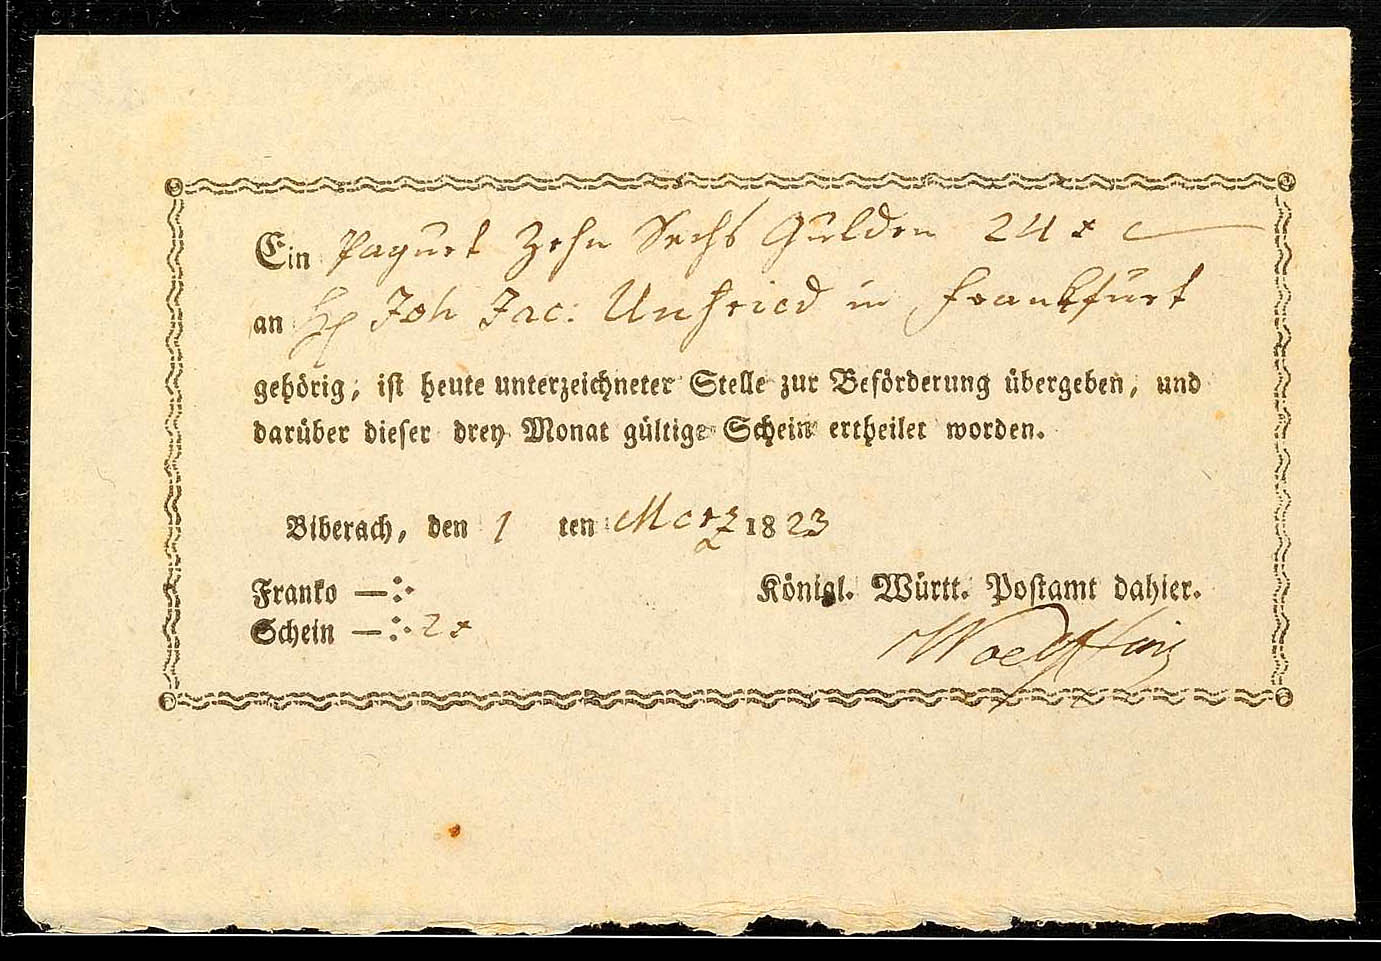 Ein Paquet Zehn Sechs Gulden 24 x
an H. Joh Jac: Unfried in Frankfurt
gehörig, ist heute unterzeichneter Stelle zur Beförderung übergeben, und
darüber dieser drey Monat gültige Schein ertheilet worden.
Biberach, den 1 ten Merz 1823
Franko —:
Schein —: 2 x
Königl. Württ. Postamt dahier.